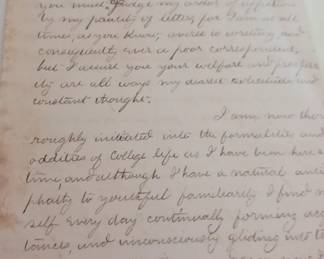 you must judge my ardor of affection
by my paucity of letters for I am at all
times, as you know, averse to writing, and
consequently ever a poor correspondent,
but I assure you your welfare and prosper
ity are all ways my dearest solicitude and
constant thought.
I am now thor
roughly initiated into the formalities and
oddities of College life as I have been here some
time, and although I have a natural anti
phalty to youthful familiarity I find my
self every day continually forming acq
taincies, and unconsciously gliding into